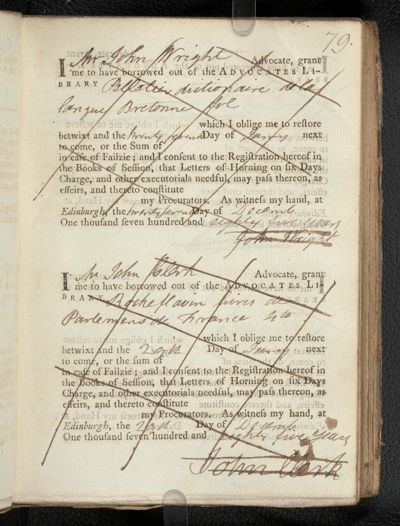 79.
I Mr John Wright Advocate, grant
me to have borrowed out of the ADVOCATES LI-
BRARY Pelletier dictionaire de la
langue Bretonne fol
which I oblige me to restore
betwixt and the twenty second Day of Janry next
to come, or the Sum of
in case of Failzie; and I consent to the Registration hereof in
the Books of Session, that Letters of Horning on six Days
Charge, and other executorials needful, may pass thereon, as
effeirs, and thereto constitute
my Procurators. As witness my hand, at
Edinburgh, the twenty second Day of Decemb
One thousand seven hundred and eighty five years
John Wright
I Mr John Clerk Advocate, grant
me to have borrowed out of the ADVOCATES LI-
BRARY Rocheflavin livres des
Parlemens de France 4to
which I oblige me to restore
betwixt and the Day of Janry next
to come, or the sum of
in case of Failzie; and I consent to the Registration hereof in
the Books of Session, that Letters of Horning on six Days
Charge, and other executorials needful, may pass thereon, as
effeirs, and thereto constitute
my Procurators. As witness my hand, at
Edinburgh, the Day of Decemb
One thousand seven hundred and eighty five years
John Clerk